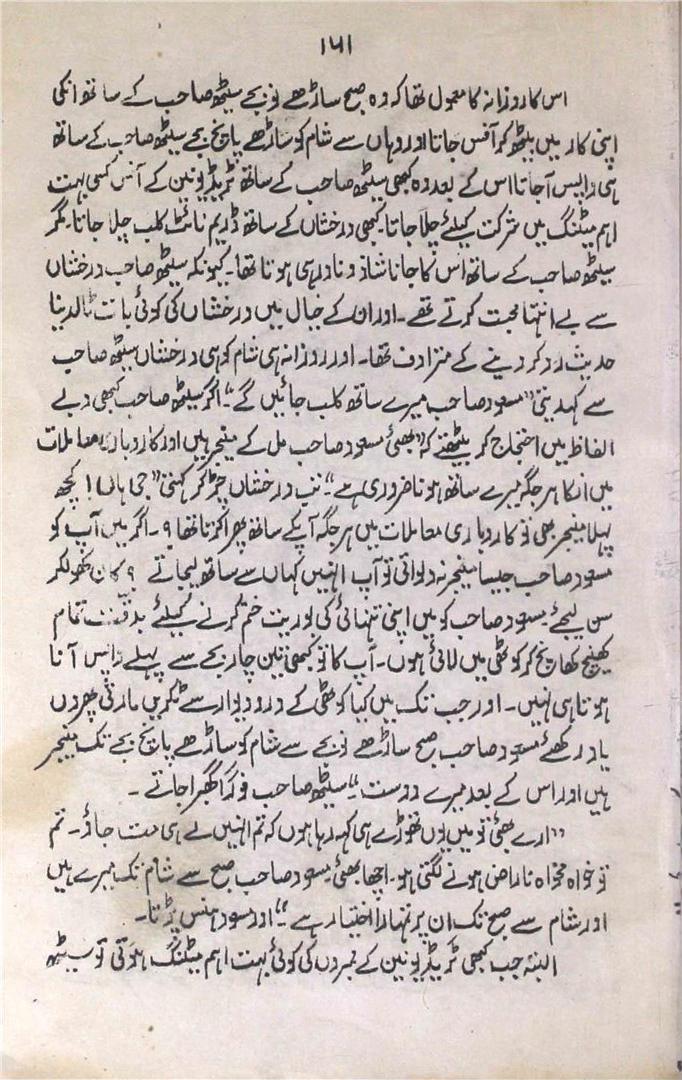 ۱۵۱
اس کا روزانہ کا معمول تھا کہ وہ صبح ساڑھے نو بجے سیٹھ صاحب کے ساتھ انکی
اپنی کار میں بیٹھ کر آفس جاتا اور وہاں سے شام کو ساڑھے پانچ بجے سیٹھ صاحب کے ساتھ
ہی واپس آجاتا اس کے بعد وہ کبھی سیٹھ صاحب کے ساتھ ٹریڈ یونین کے آفس کسی بہت
اہم میٹنگ میں شرکت کیلئے چلا جاتا۔ کبھی درخشاں کے ساتھ ڈریم نائٹ کلب چلا جاتا۔ مگر
سیٹھ صاحب کے ساتھ اس کا جانا شاذ و نادر ہی ہوتا تھا۔ کیونکہ سیٹھ صاحب درخشاں
سے بے انتہا محبت کرتے تھے۔ اور ان کے خیال میں درخشاں کی کوئی بات ٹالدینا
حدیث رد کر دینے کے مترادف تھا۔ اور روزانہ ہی شام کو ہی درخشاں سیٹھ صاحب
سے کہدیتی "مسعود صاحب میرے ساتھ کلب جائیں گے"۔ اگر سیٹھ صاحب کبھی دبے
الفاظ میں احتجاج کر بیٹھتے کہ "بھئی مسعود صاحب مل کے منیجر ہیں اور کاروباری معاملات
میں انکا ہر جگہ میرے ساتھ ہونا ضروری ہے"۔ تب درخشاں چڑ کر کہتی "جی ہاں! کچھ
پہلا منیجر بھی تو کاروباری معاملات میں ہر جگہ آپکے ساتھ پھرا کرتا تھا ؟۔ اگر میں آپ کو
مسعود صاحب جیسا منیجر نہ دلواتی تو آپ انہیں کہاں سے ساتھ لیجاتے ؟ کان کھولکر
سن لیجئے مسعود صاحب کو میں اپنی تنہائی کی بوریت ختم کرنے کیلئے بدقت تمام
کھینچ کھانچ کر کوٹھی میں لائی ہوں۔ آپ کا تو کبھی تین چار بجے سے پہلے واپس آنا
ہوتا ہی نہیں۔ اور جب تک میں کیا کوٹھی کے در و دیوار سے ٹکریں مارتی پھروں
یاد رکھئے مسعود صاحب صبح ساڑھے نو بجے سے شام کو ساڑھے پانچ بجے تک منیجر
ہیں اور اس کے بعد میرے دوست"۔ سیٹھ صاحب فوراً گھبرا جاتے۔
"ارے بھئی تو میں یوں تھوڑے ہی کہہ رہا ہوں کہ تم انہیں لے ہی مت جاؤ۔ تم
تو خواہ مخواہ ناراض ہونے لگتی ہو۔ اچھا بھئی مسعود صاحب صبح سے شام تک میرے ہیں
اور شام سے صبح تک ان پر تمہارا اختیار ہے"۔ اور مسعود ہنس پڑتا۔
البتہ جب کبھی ٹریڈ یونین کے ممبروں کی کوئی بہت اہم میٹنگ ہوتی تو سیٹھ